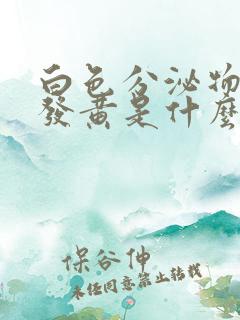 白色分泌物
發黃是什麼
保谷伸
未经同意禁止转载